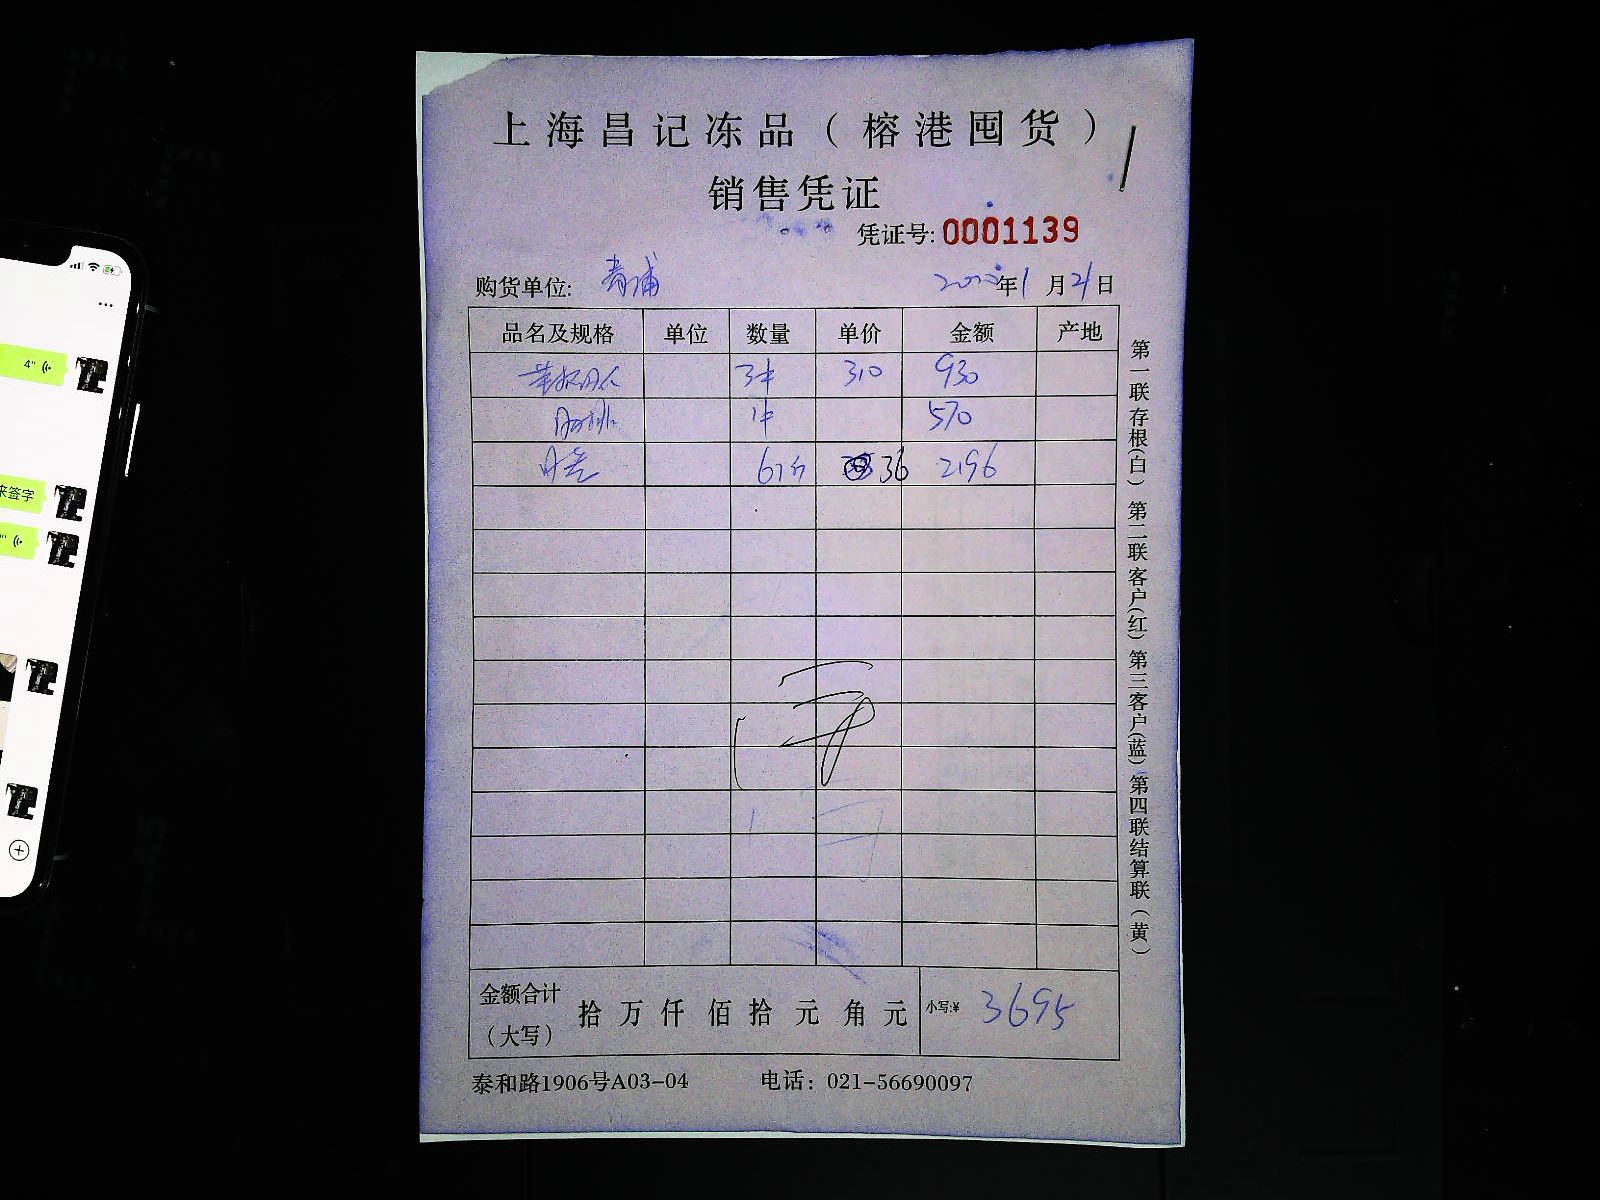 上海昌记冻品（榕港囤货）
销售凭证
凭证号: 0001139
购货单位: 青浦 年1月21日
品名及规格 单位 数量 单价 金额 产地
3件 310 930
1件 570
61斤 36 2196
金额合计（大写） 拾 万 仟 佰 拾 元 角 元 小写:¥ 3695
泰和路1906号A03-04 电话：021-56690097
第一联存根(白) 第二联客户(红) 第三客户(蓝) 第四联结算联(黄)
4"
来签字